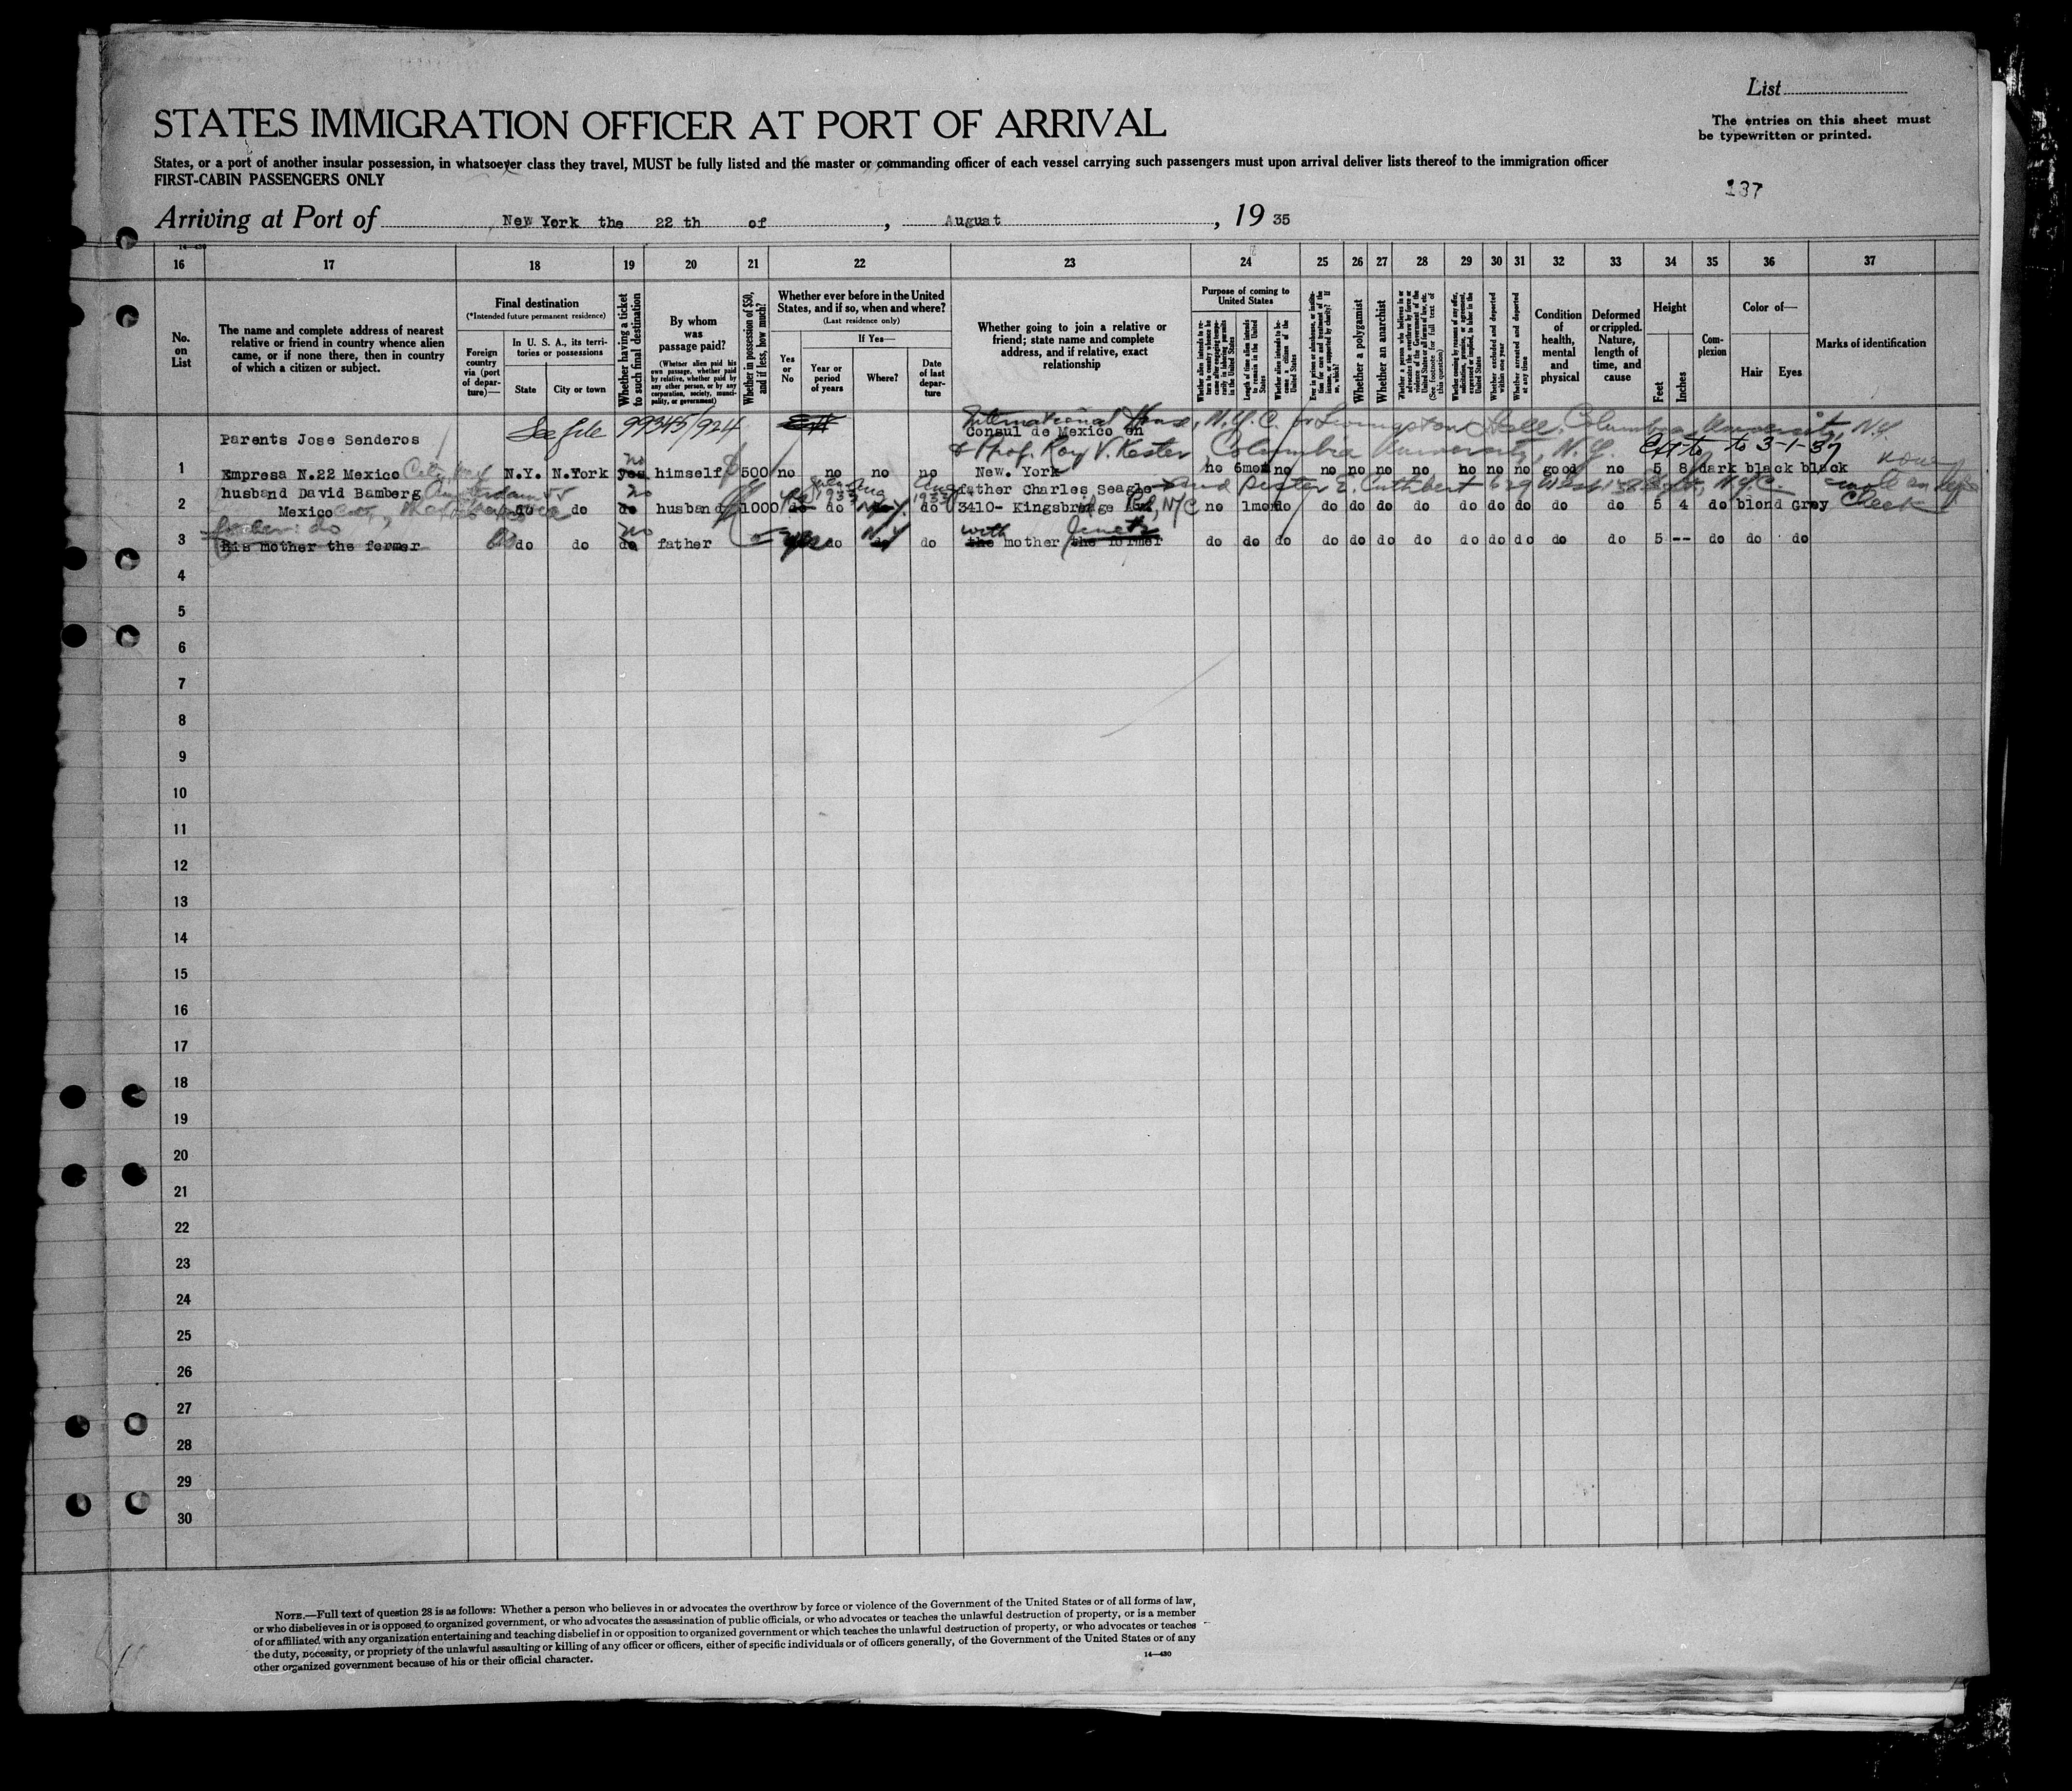 List
STATES IMMIGRATION OFFICER AT PORT OF ARRIVAL
The entries on this sheet must
be typewritten or printed.
States, or a port of another insular possession, in whatsoever class they travel, MUST be fully listed and the master or commanding officer of each vessel carrying such passengers must upon arrival deliver lists thereof to the immigration officer
FIRST-CABIN PASSENGERS ONLY
137
Arriving at Port of New York the 22 th of , August , 19 35
14—430
16 17 18 19 20 21 22 23 24 25 26 27 28 29 30 31 32 33 34 35 36 37
No.
on
List
The name and complete address of nearest
relative or friend in country whence alien
came, or if none there, then in country
of which a citizen or subject.
Final destination
(*Intended future permanent residence)
Foreign
country
via (port
of depar-
ture)—
In U. S. A., its terri-
tories or possessions
State
City or town
Whether having a ticket
to such final destination
By whom
was
passage paid?
(Whether alien paid his
own passage, whether paid
by relative, whether paid by
any other person, or by any
corporation, society, munici-
pality, or government)
Whether in possession of $50,
and if less, how much?
Whether ever before in the United
States, and if so, when and where?
(Last residence only)
Yes
or
No
If Yes—
Year or
period
of years
Where?
Date
of last
depar-
ture
Whether going to join a relative or
friend; state name and complete
address, and if relative, exact
relationship
Purpose of coming to
United States
Length of time alien intends
to remain in the United
States
Whether alien intends to be-
come a citizen of the
United States
Whether a polygamist
Whether an anarchist
Whether excluded and deported
within one year
Whether arrested and deported
at any time
Condition
of
health,
mental
and
physical
Deformed
or crippled.
Nature,
length of
time, and
cause
Height
Feet
Inches
Com-
plexion
Color of—
Hair
Eyes
Marks of identification
See file 99345/924
International House, N.Y.C. or Livingston Hall, Columbia University, N.Y.
Parents Jose Senderos
Consul de Mexico en
& Prof. Roy V. Kester, Columbia University, N.Y. Ext to 3-1-37
no
1 Empresa N.22 Mexico City N.Y. N.York yes himself 500 no no no no New. York no 6mon no no no no no no no no good no 5 8 dark black black none
husband David Bamberg no 1933 Aug 1933 father Charles Seagle and sister E. Cuthbert 629 West 138 N.Y.C. mole on left
2 Mexico do do do husband 1000 do do do 3410- Kingsbridge Rd, NYC no 1mon do do do do do do do do do do 5 4 do blond Grey Cheek
father: do no N.Y. with
3 his mother the former do do do father do do the mother the former do do do do do do do do do do do do 5 -- do do do
4
5
6
7
8
9
10
11
12
13
14
15
16
17
18
19
20
21
22
23
24
25
26
27
28
29
30
NOTE.—Full text of question 28 is as follows: Whether a person who believes in or advocates the overthrow by force or violence of the Government of the United States or of all forms of law,
or who disbelieves in or is opposed to organized government, or who advocates the assassination of public officials, or who advocates or teaches the unlawful destruction of property, or is a member
of or affiliated with any organization entertaining and teaching disbelief in or opposition to organized government or which teaches the unlawful destruction of property, or who advocates or teaches
the duty, necessity, or propriety of the unlawful assaulting or killing of any officer or officers, either of specific individuals or of officers generally, of the Government of the United States or of any
other organized government because of his or their official character.
14—430